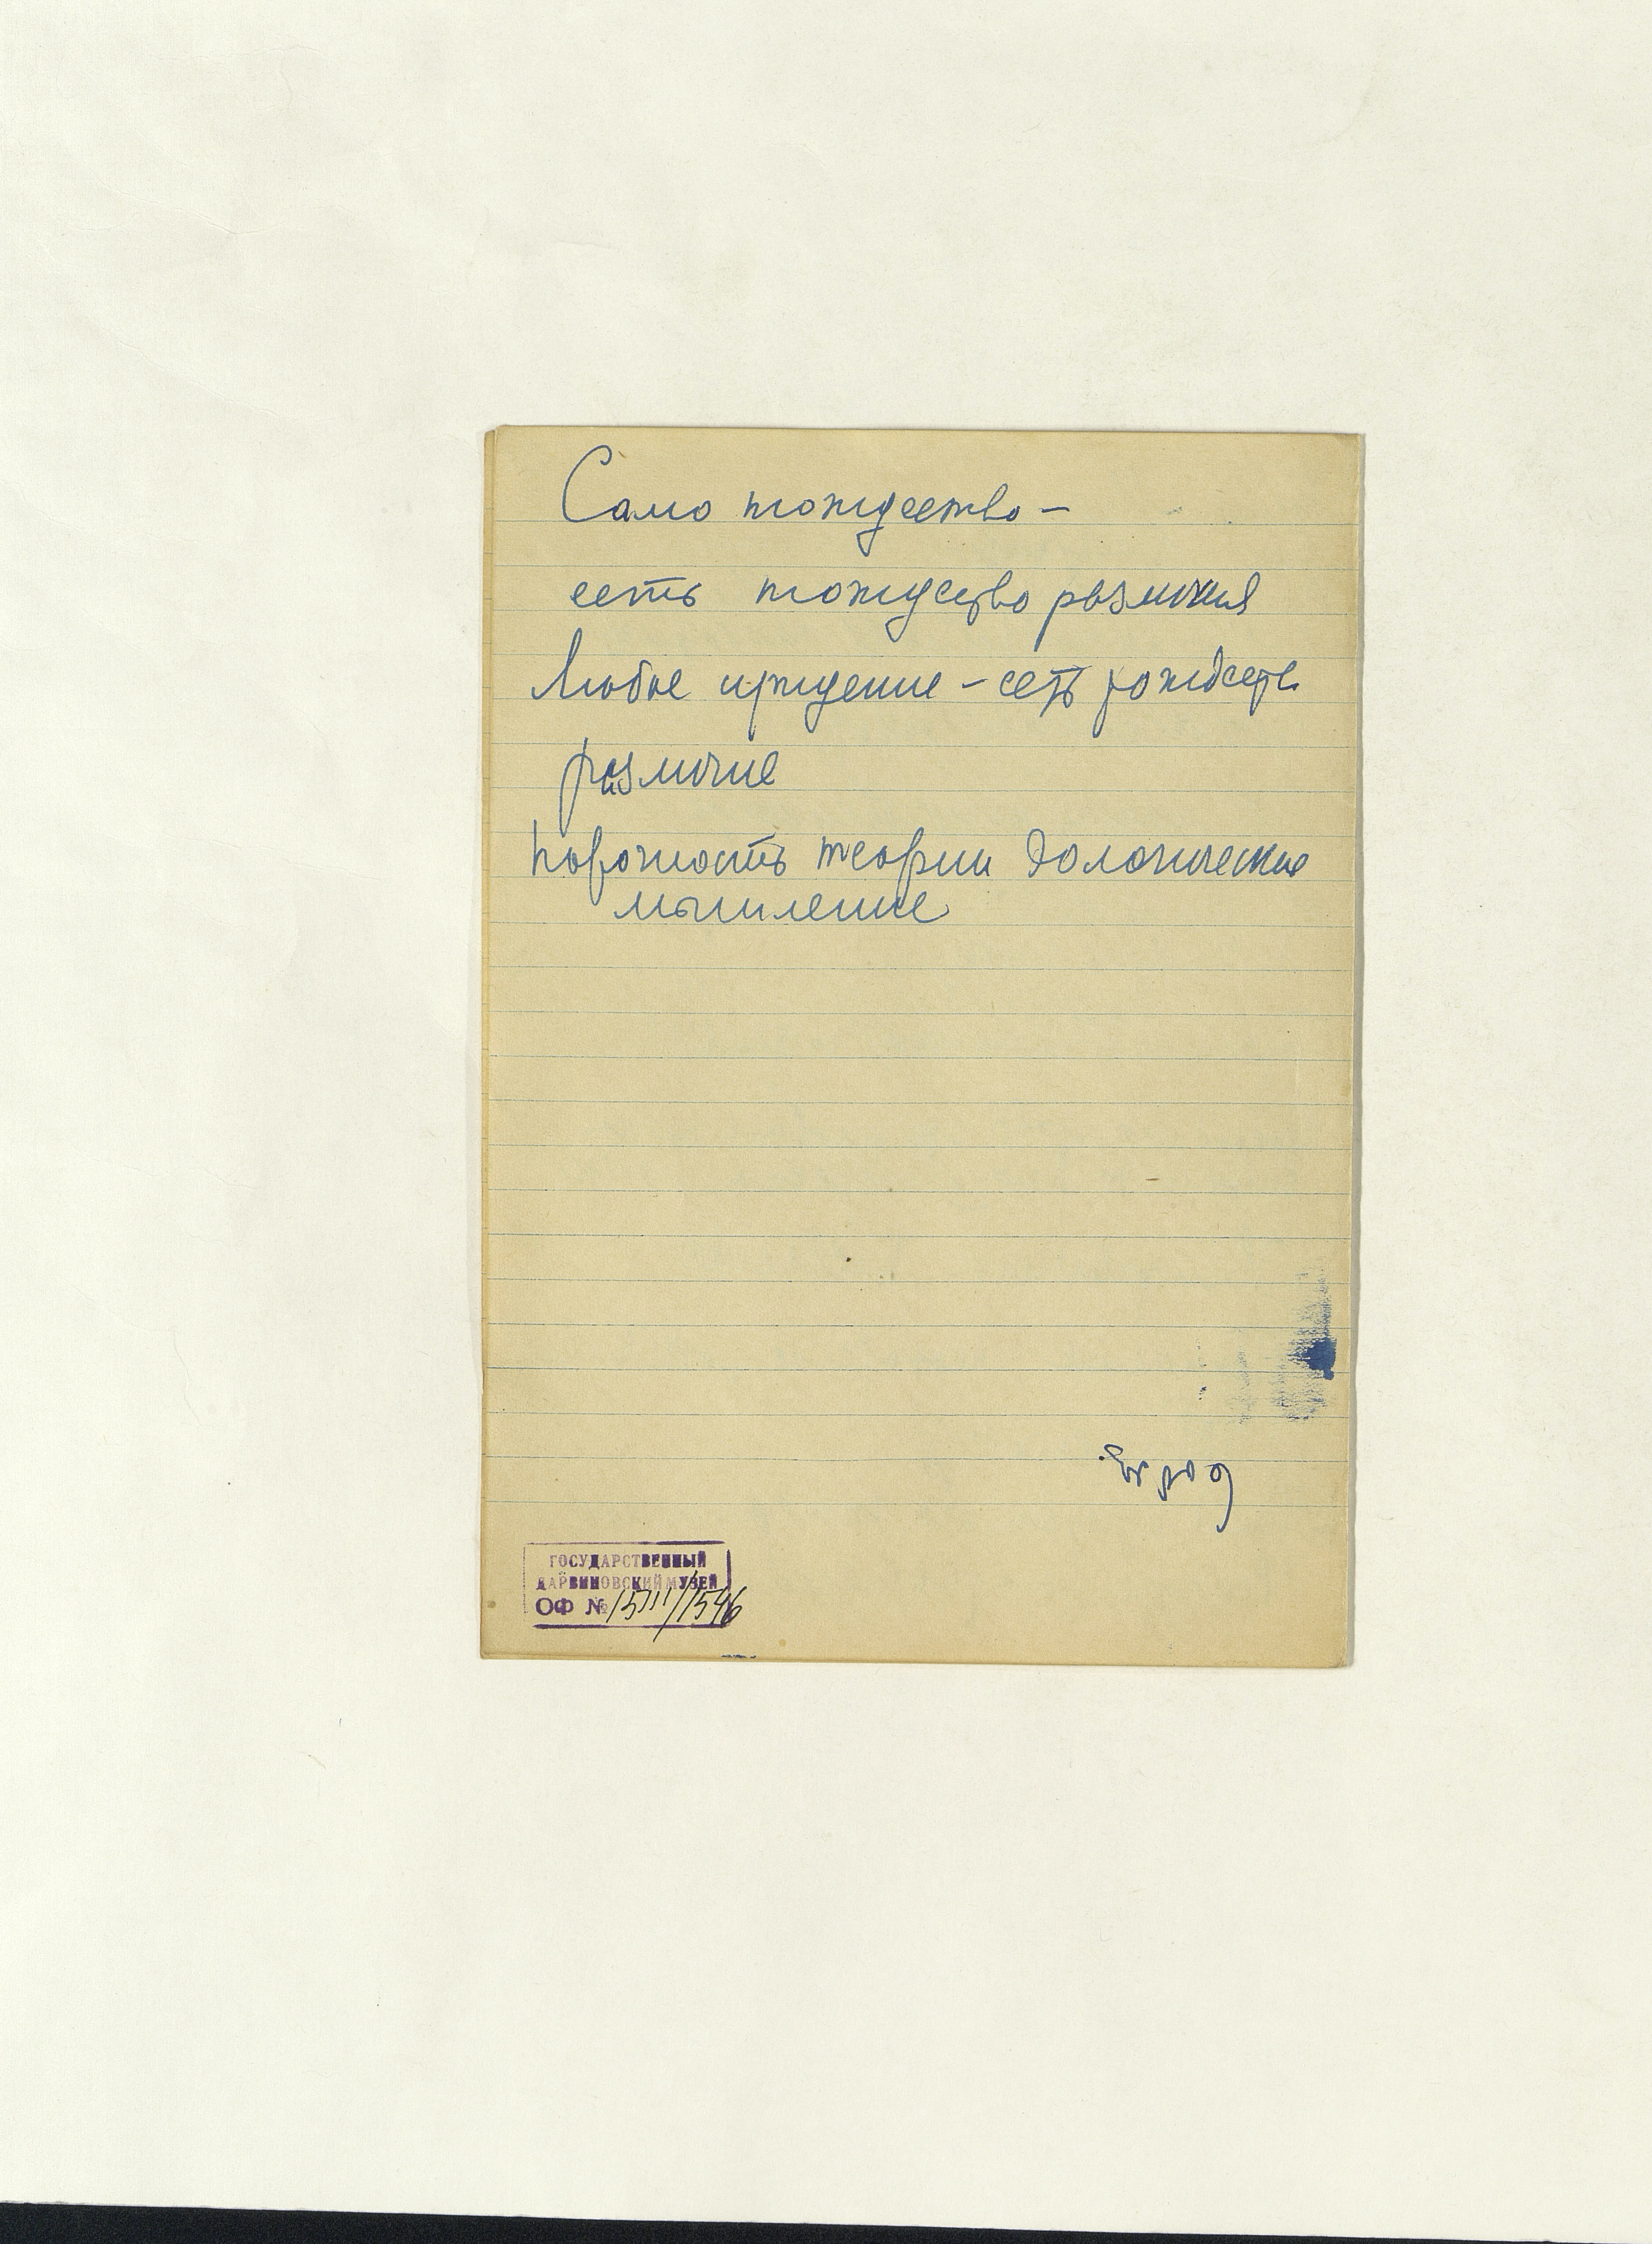 Само тождество -
есть тождество различия
Любое суждение - есть тождеств
различие
Порочность теории дологические
мышление
ГОСУДАРСТВЕННЫЙ
ДАРВИНОВСКИЙ МУЗЕЙ
ОФ № 15111/1546